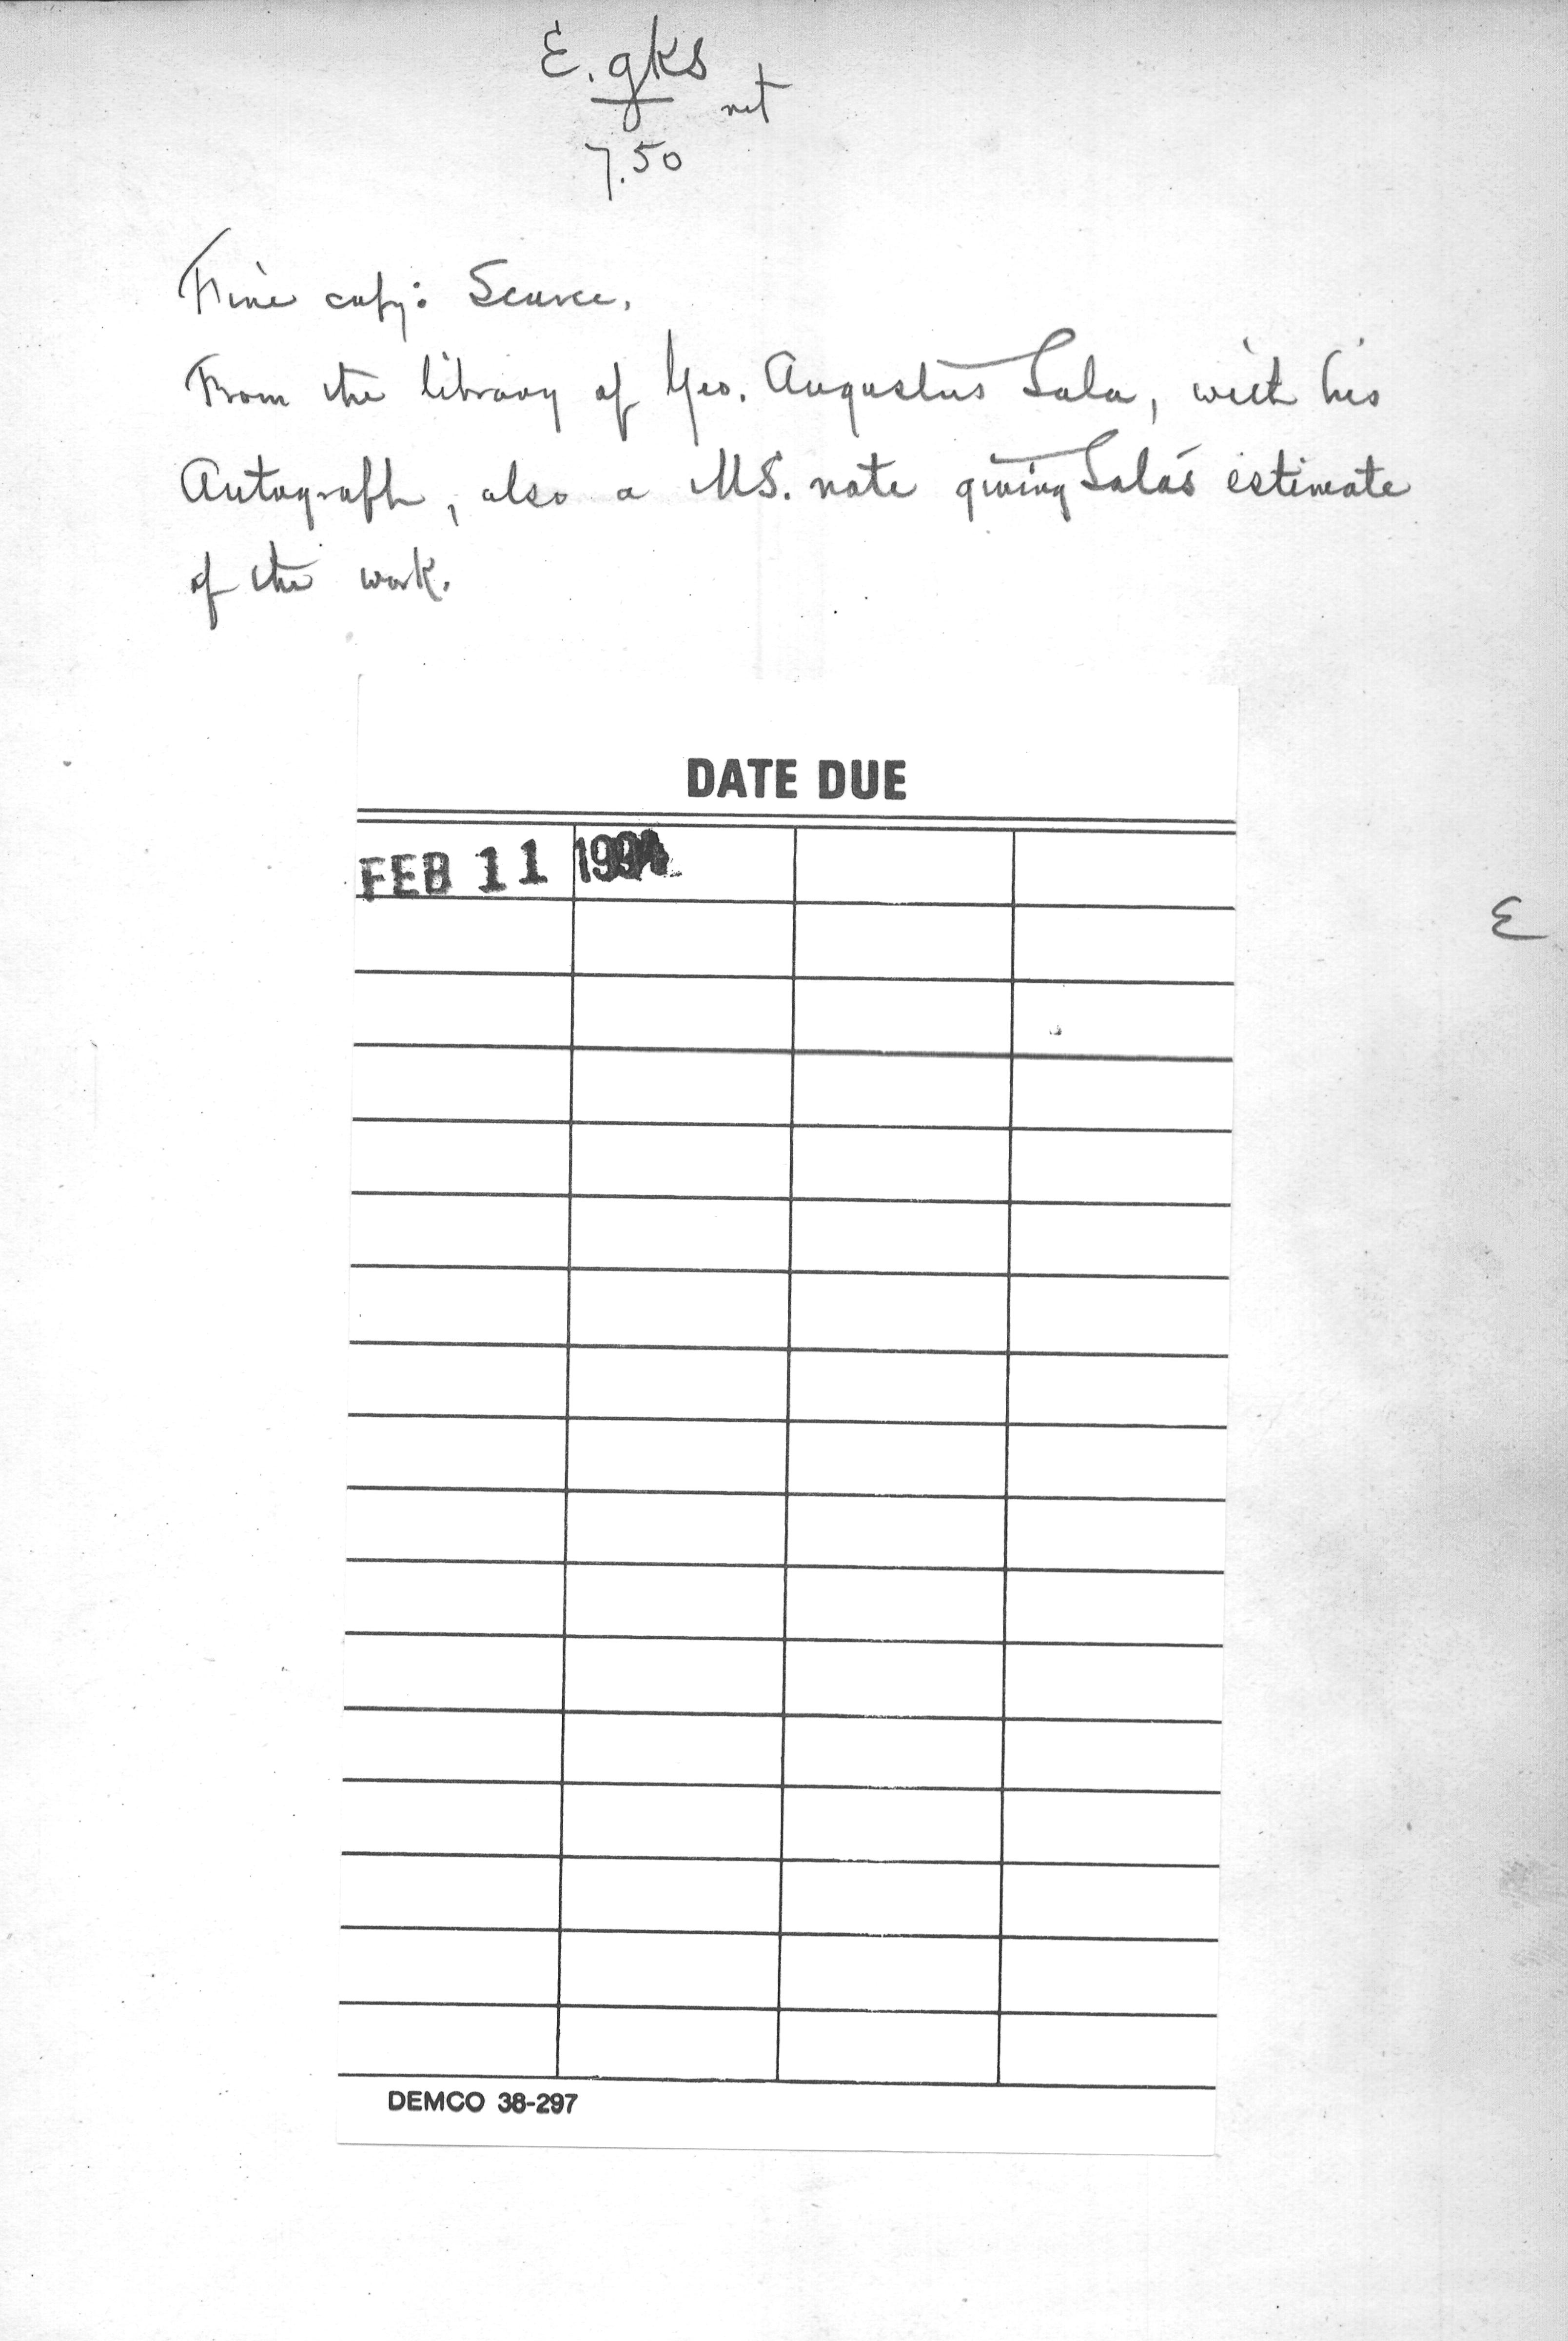 E. gks
net
7.50
Fine copy: Scarce.
From the library of Geo. Augustus Sala, with his
Autograph, also a MS. note giving Sala's estimate
of the work.
DATE DUE
FEB 11
E
DEMCO 38-297